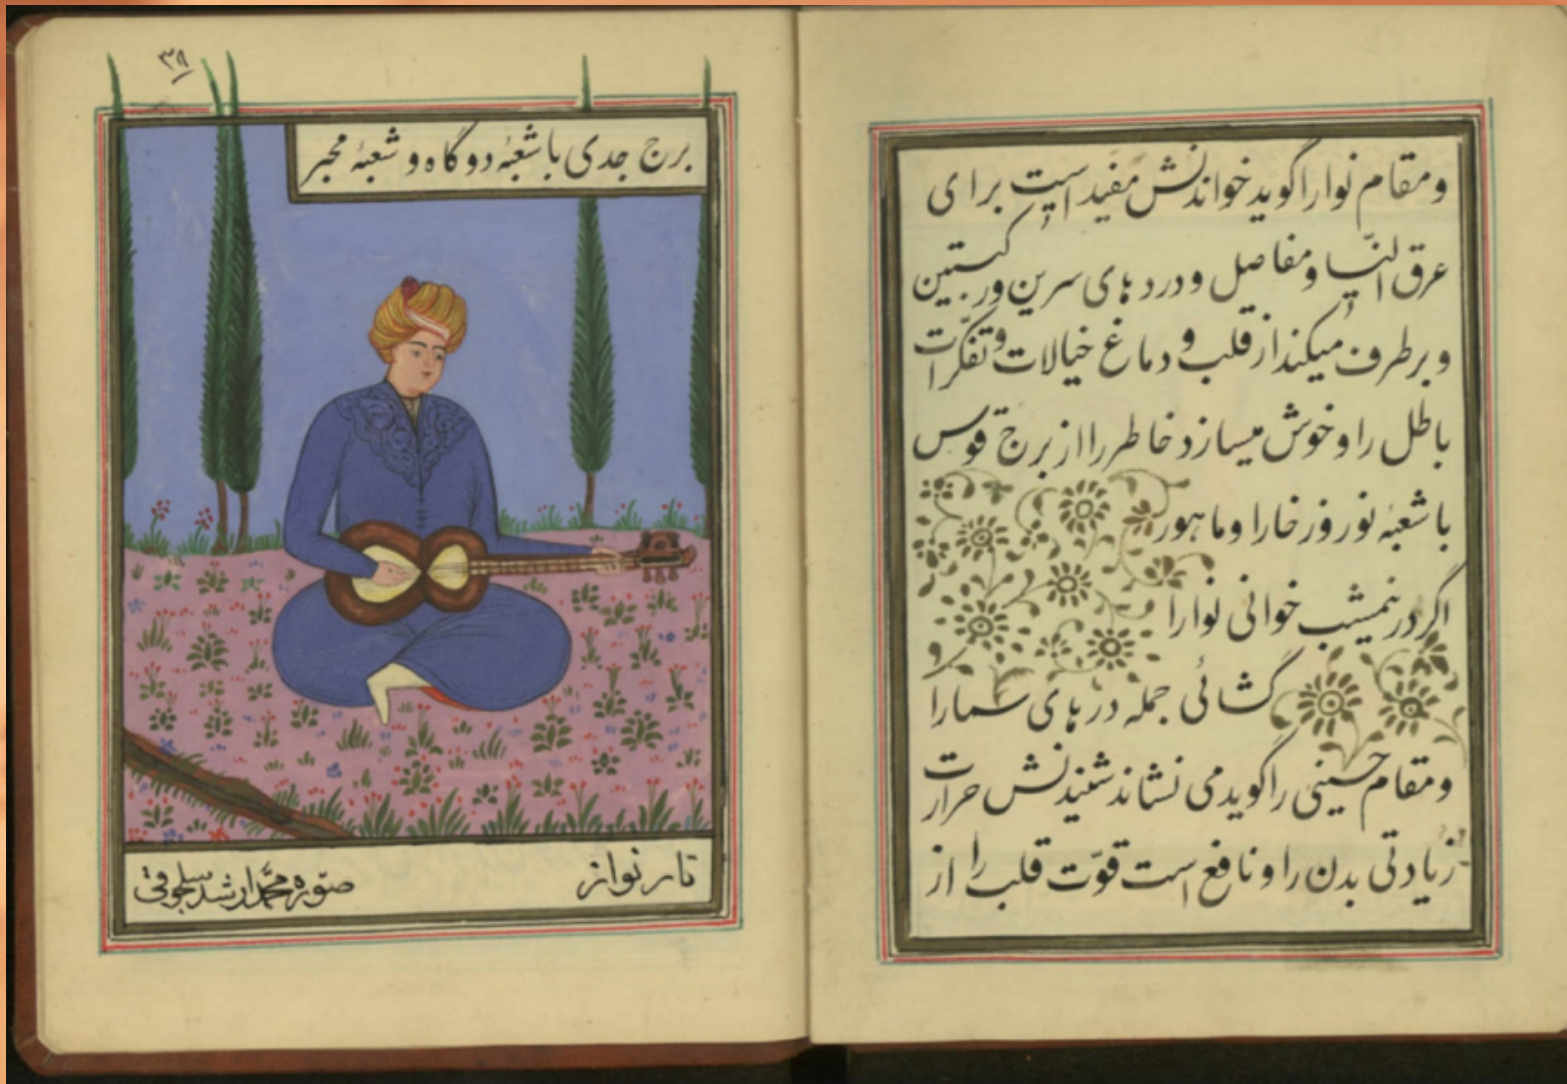 و مقام نوا را گوید خواندنش مفید است برای
عرق النسا و مفاصل و دردهای سرین و رکبتین
و برطرف میکند از قلب و دماغ خیالات و تفکرات
باطل را و خوش میسازد خاطر را از برج قوس
با شعبهٔ نوروز خارا و ماهور
اگر در نیمشب خوانی نوا را
گشائی جمله درهای سما را
و مقام حسینی را گوید می نشاند شنیدنش حرارت
زیادتی بدن را و نافع است قوّت قلب را از
۳۹
برج جدی با شعبهٔ دوگاه و شعبهٔ محیر
تار نواز
صوّره محمّد ارشد سلجوقی